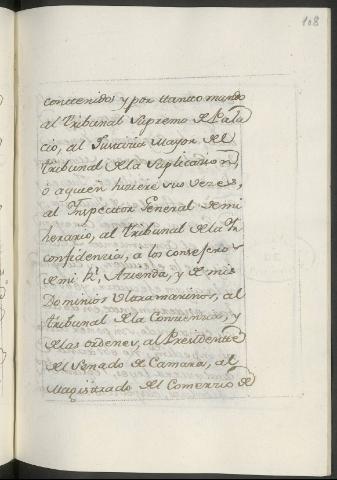 108
contenidos y por ttanto mando
al tribunal Supremo de Pala
cio, al Justicia Mayor del
tribunal de la Suplicacion,
ò aquien hiciere sus vezes,
al Inspector General de mi
herario, al tribunal de la In
confidencia, a los consejeros
de mi Rl Azienda, y de mis
Dominios Ultramarinos, al
tribunal de la Conciencia, y
de las ordenes, al Presidente
del Senado de Camara, al
Magistrado del Comercio de